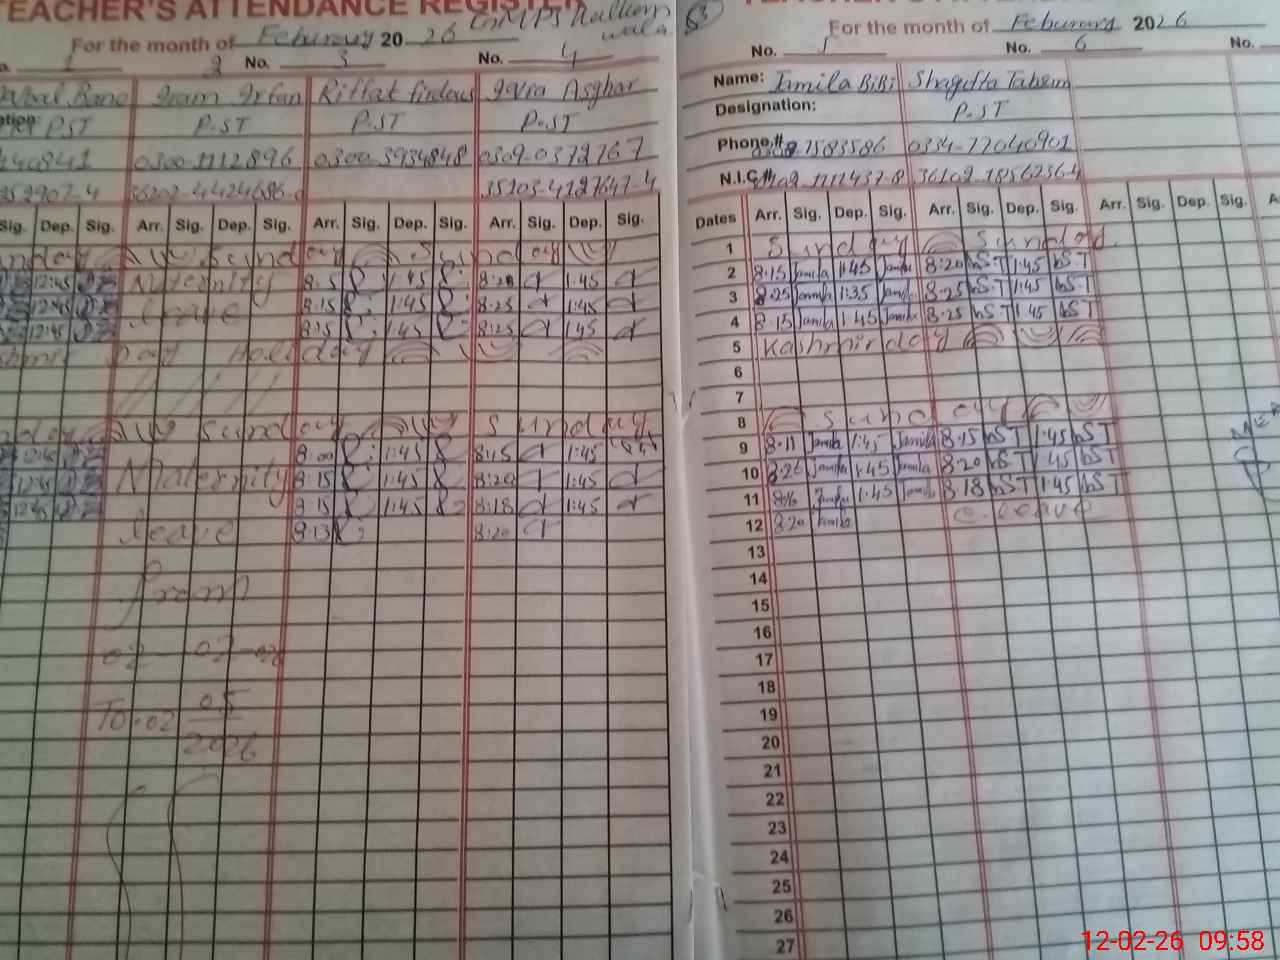 TEACHER'S ATTENDANCE REGISTER
For the month of Feburary 2026
1 2 No. 3 No. 4
Iram Irfan Riffat firdous Javia Asghar
P.ST P.ST P.ST P.ST
0300-1112896 0300-3934848 0309-0372767
35103-4127647-4
Sig. Dep. Sig. Arr. Sig. Dep. Sig. Arr. Sig. Dep. Sig. Arr. Sig. Dep. Sig.
Sunday Sunday
12:45 Maternity 8:5 1:45 8:20 1:45
12:45 leave 8:15 1:45 8:25 1:45
12:45 8:15 1:45 8:25 1:45
Day Holiday
Sunday Sunday
12:45 8:00 1:45 8:15 1:45
12:45 Maternity 8:15 1:45 8:20 1:45
12:45 8:15 1:45 8:18 1:45
leave 8:13 8:20
from
02-02-026
To.02 05
2026
53
For the month of Feburary 2026
No. 5 No. 6 No.
Name: Jamila BiBi Shagufta Tabsum
Designation: P.ST
Phone# 7583586 0334-77040901
N.I.C# 1111437-8 36102-1856236-4
Dates Arr. Sig. Dep. Sig. Arr. Sig. Dep. Sig. Arr. Sig. Dep. Sig.
1 Sunday Sunday
2 8:15 Jamila 1:45 Jamila 8:20 hST 1:45 hST
3 8:25 Jamila 1:35 Jamila 8:25 hST 1:45 hST
4 8:15 Jamila 1:45 Jamila 8:25 hST 1:45 hST
5 Kashmir day
6
7
8 Sunday
9 8:11 Jamila 1:45 Jamila 8:15 hST 1:45 hST
10 8:25 Jamila 1:45 Jamila 8:20 hST 1:45 hST
11 8:16 Jamila 1:45 Jamila 8:18 hST 1:45 hST
12 8:20 Jamila C.leave
13
14
15
16
17
18
19
20
21
22
23
24
25
26
27
12-02-26 09:58